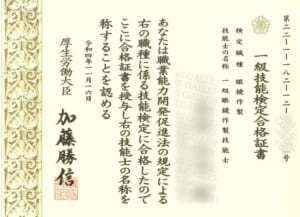 第二二-一-一八二-一二-号
一級技能検定合格証書
検定職種 眼鏡作製
技能士の名称 一級眼鏡作製技能士
あなたは職業能力開発促進法の規定による
右の職種に係る技能検定に合格したので
ここに合格証書を授与し右の技能士の名称を
称することを認める
令和四年一一月一六日
厚生労働大臣 加藤勝信